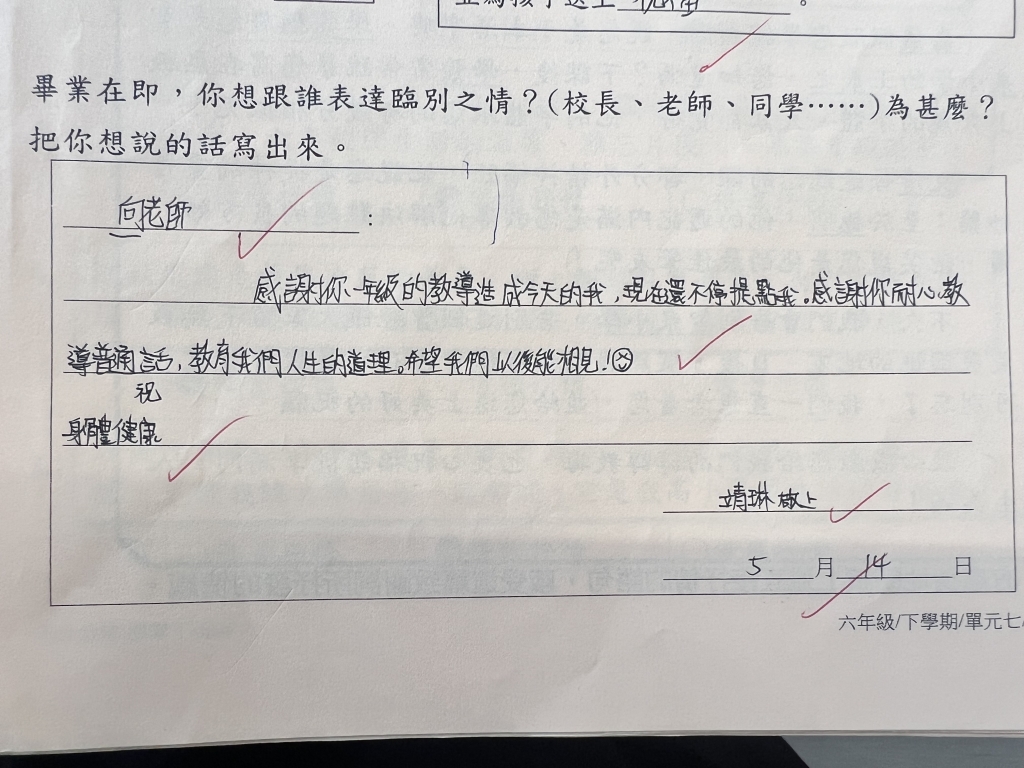 畢業在即，你想跟誰表達臨別之情？(校長、老師、同學……)為甚麼？
把你想說的話寫出來。
向老師：
感謝你一年級的教導造成今天的我，現在還不停提點我。感謝你耐心教
導普通話，教育我們人生的道理。希望我們以後能相見！
祝
身體健康
靖琳敬上
5月14日
六年級/下學期/單元七/